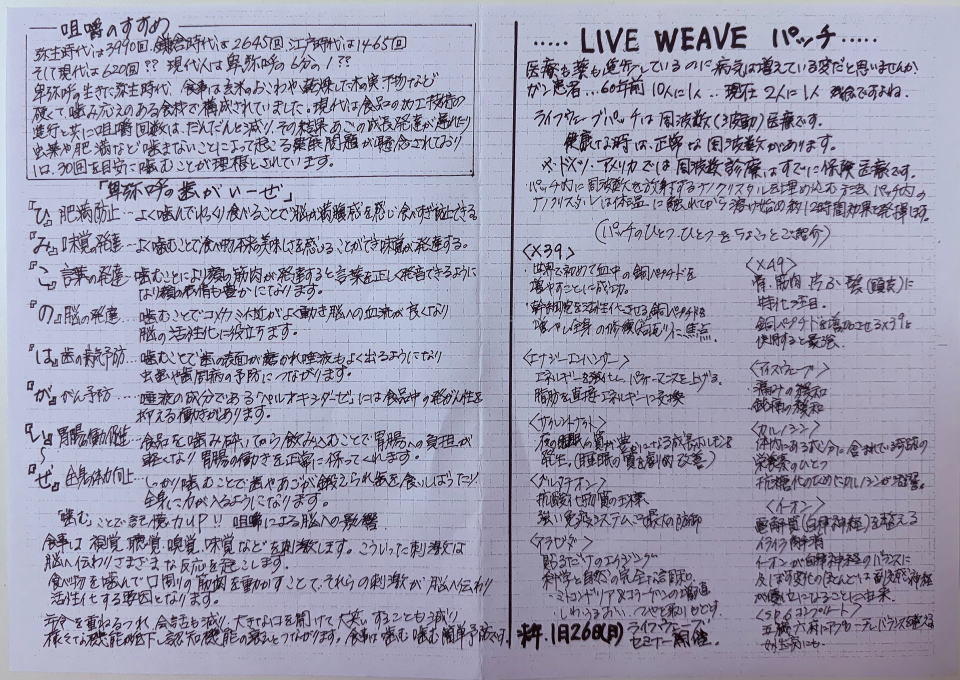 咀嚼のすすめ
弥生時代は3990回、鎌倉時代は2645回、江戸時代は1465回
そして現代は620回?? 現代人は卑弥呼の6分の1??
卑弥呼の生きた弥生時代、食事は玄米のおこわや乾燥した木の実、干物など
硬くて噛み応えのある食材で構成されていました。現代は食品の加工技術の
進行と共に咀嚼回数は、だんだんと減り、その結果あごの成長発達が遅れたり
虫歯や肥満など噛まないことによって起こる健康問題が懸念されており
1口、30回を目安に噛むことが理想とされています。
「卑弥呼の歯がいーぜ」
『ひ』肥満防止…よく噛んでゆっくり食べることで脳が満腹感を感じ食べすぎ防止できる
『み』味覚の発達…よく噛むことで食べ物本来の美味しさを感じることができ味覚が発達する。
『こ』言葉の発達…噛むことにより顔の筋肉が発達すると言葉を正しく発音できるように
なり顔の表情も豊かになります。
『の』脳の発達…噛むことでコメカミ付近がよく動き脳への血流が良くなり
脳の活性化に役立ちます。
『は』歯の病気予防…噛むことで歯の表面が磨かれ唾液もよく出るようになり
虫歯や歯周病の予防につながります。
『が』がん予防……唾液の成分である「ペルオキシダーゼ」には食品中の発がん性を
抑える働きがあります。
『い〜』胃腸の働き促進…食品を噛み砕いてから飲みこむことで胃腸への負担が
軽くなり胃腸の働きを正常に保ってくれます。
『ぜ』全身の体力向上…しっかり噛むことで歯やあごが鍛えられ歯を食いしばったり
全身に力が入るようになります。
「噛む」ことで記憶力UP!! 咀嚼による脳への影響
食事は視覚、聴覚、嗅覚、味覚などを刺激します。こういった刺激は
脳へ伝わりさまざまな反応を起こします。
食べ物を噛んで口周りの筋肉を動かすことで、それらの刺激が脳へ伝わり
活性化する要因となります。
年令を重ねるにつれ、会話も減り、大きな口を開けて大笑いすることも減り
様々な機能が低下し認知機能の衰えへとつながります。食事は噛む噛む簡単予防です。
‥‥‥LIVE WEAVE パッチ‥‥‥
医療も薬も進行しているのに病気は増えている変だと思いませんか?
ガン患者…60年前 10人に1人…現在 2人に1人 残念ですよね。
ライフウェーブパッチは周波数(波動)医療です。
健康な時は、正常な周波数があります。
※ドイツ、アメリカでは周波数診療はすでに保険医療です。
パッチ内に周波数を放射するナノクリスタルを埋め込む方法 パッチ内の
ナノクリスタルは体温に触れてから溶け始め約12時間効果を発揮します。
(パッチのひとつひとつをちょこっとご紹介)
〈X39〉
・世界で初めて血中の銅ペプチドを
増やすことに成功。
・幹細胞を活性化させる銅ペプチドを
増やし全身の修復(若返り)に焦点
〈エナジーエンハンサー〉
エネルギーを強化し、パフォーマンスを上げる。
脂肪を直接エネルギーに変換
〈サイレントナイト〉
夜の睡眠の質が
発生。(睡眠の質を劇的改善)
〈グルタチオン〉
抗酸化物質の王様
強い免疫システムこそ最大の防御
〈アラビダ〉
貼るだけのエイジング
科学と自然の完全な調和。
ミトコンドリア&コラーゲンの増進
しわ、うるおい、つやを取り
〈X49〉
骨、筋肉、髪(頭皮)に
特化
銅ペプチドを増加させるX39と
使用すると最強。
〈アイスウェーブ〉
痛みの緩和
鈍痛の緩和
〈カルノシン〉
栄養素のひとつ
〈イーオン〉
自律神経を整える
イライラ解消
イーオンが自律神経のバランスに
及ぼす変化のほとんどは副交感神経
が優位になることに由来。
〈SP6コンプリート〉
来年、1月26日(月) ライフウェーブ
セミナー開催。